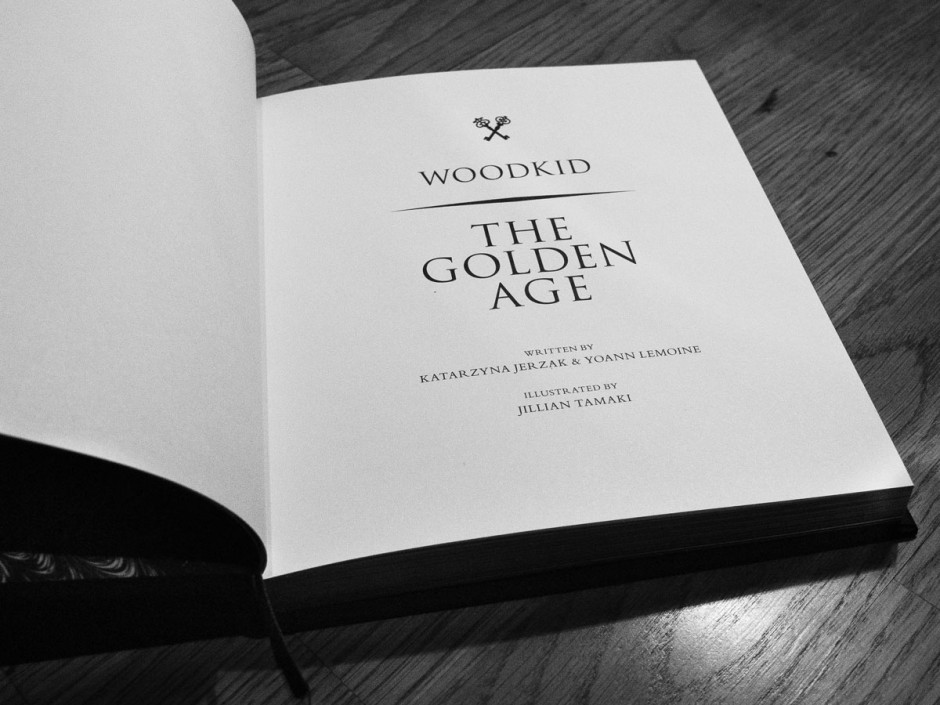 WOODKID
THE
GOLDEN
AGE
WRITTEN BY
KATARZYNA JERZAK & YOANN LEMOINE
ILLUSTRATED BY
JILLIAN TAMAKI